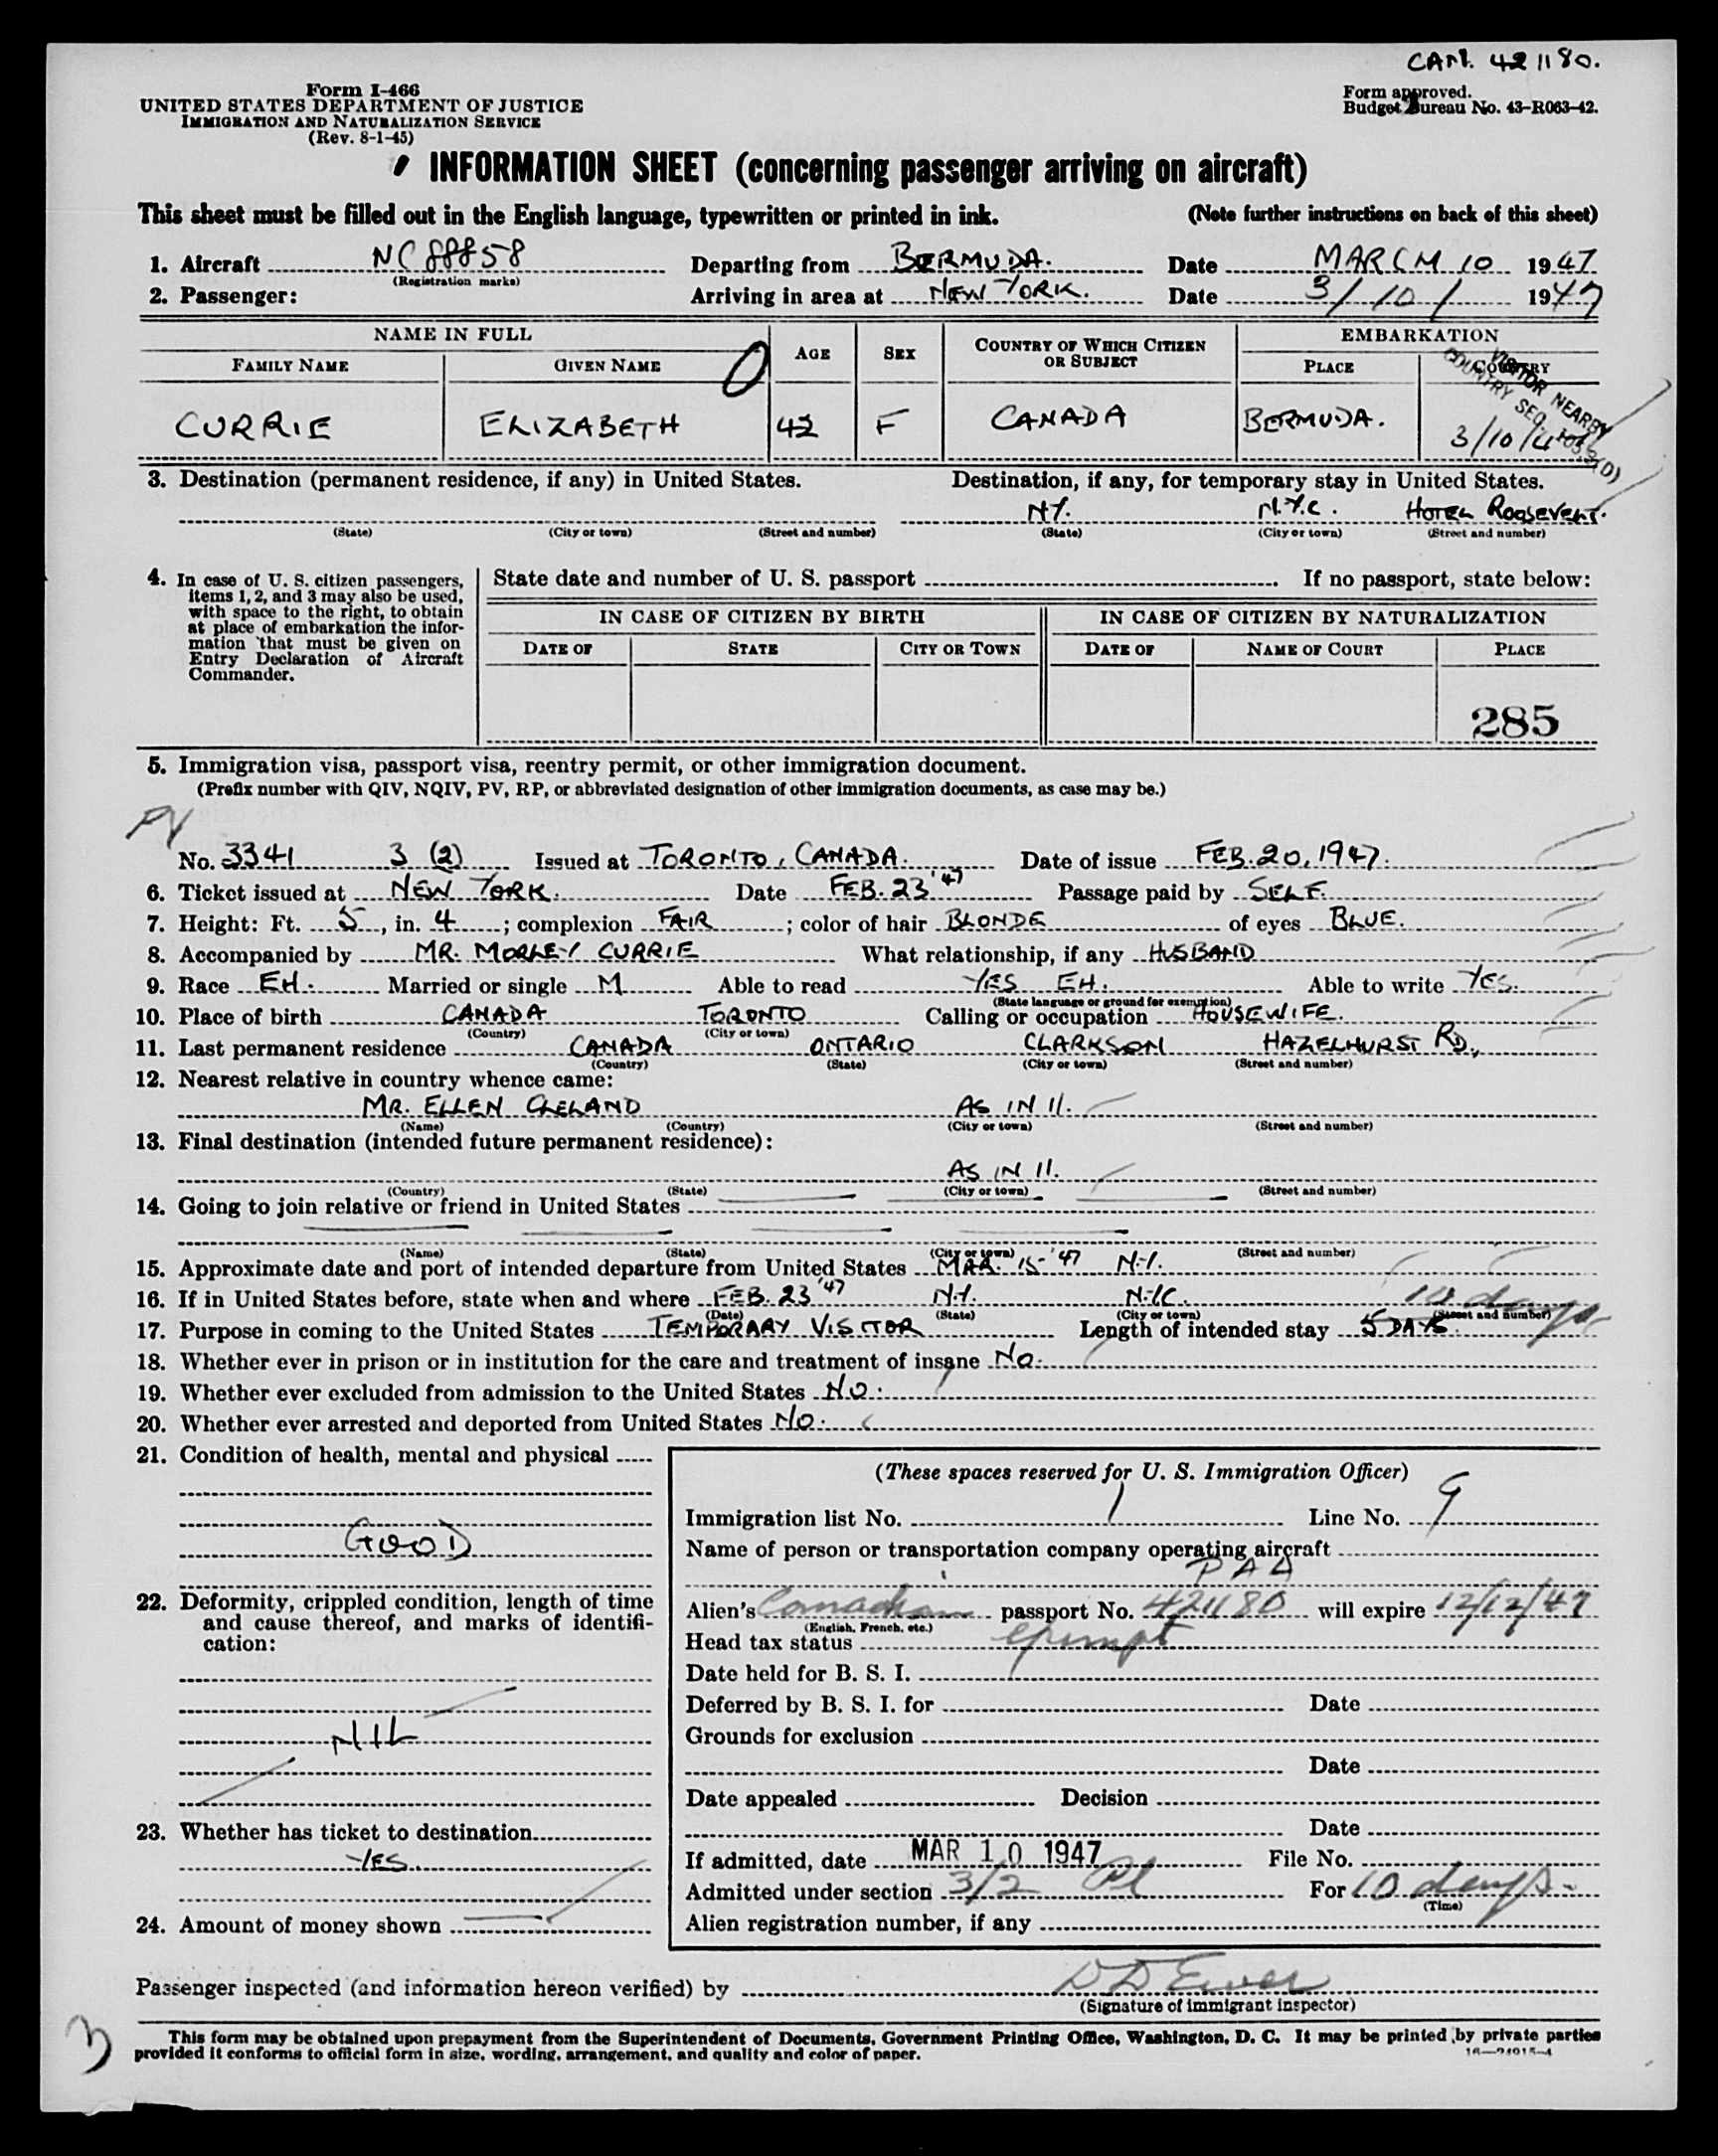 CAN. 421180.
Form I-466
UNITED STATES DEPARTMENT OF JUSTICE
IMMIGRATION AND NATURALIZATION SERVICE
(Rev. 8-1-45)
Form approved.
Budget Bureau No. 43-R063-42.
INFORMATION SHEET (concerning passenger arriving on aircraft)
This sheet must be filled out in the English language, typewritten or printed in ink. (Note further instructions on back of this sheet)
1. Aircraft NC88858 Departing from BERMUDA. Date MARCH 10 1947
(Registration marks)
2. Passenger: Arriving in area at NEW YORK. Date 3/10/ 1947
NAME IN FULL AGE SEX COUNTRY OF WHICH CITIZEN OR SUBJECT EMBARKATION
FAMILY NAME GIVEN NAME PLACE COUNTRY
VISITOR NEARBY
COUNTRY SEQ.
CURRIE ELIZABETH 42 F CANADA BERMUDA. 3/10/4
3. Destination (permanent residence, if any) in United States. Destination, if any, for temporary stay in United States.
NY. N.Y.C. HOTEL ROOSEVELT.
(State) (City or town) (Street and number) (State) (City or town) (Street and number)
4. In case of U. S. citizen passengers, items 1, 2, and 3 may also be used, with space to the right, to obtain at place of embarkation the information that must be given on Entry Declaration of Aircraft Commander.
State date and number of U. S. passport If no passport, state below:
IN CASE OF CITIZEN BY BIRTH IN CASE OF CITIZEN BY NATURALIZATION
DATE OF STATE CITY OR TOWN DATE OF NAME OF COURT PLACE
285
5. Immigration visa, passport visa, reentry permit, or other immigration document.
(Prefix number with QIV, NQIV, PV, RP, or abbreviated designation of other immigration documents, as case may be.)
PV
No. 3341 3 (2) Issued at TORONTO, CANADA. Date of issue FEB. 20, 1947.
6. Ticket issued at NEW YORK. Date FEB. 23 '47 Passage paid by SELF.
7. Height: Ft. 5, in. 4; complexion FAIR; color of hair BLONDE of eyes BLUE.
8. Accompanied by MR. MORLEY CURRIE What relationship, if any HUSBAND
9. Race EH. Married or single M Able to read YES EH. Able to write YES.
(State language or ground for exemption)
10. Place of birth CANADA TORONTO Calling or occupation HOUSEWIFE.
(Country) (City or town)
11. Last permanent residence CANADA ONTARIO CLARKSON HAZELHURST RD.,
(Country) (State) (City or town) (Street and number)
12. Nearest relative in country whence came:
MR. ELLEN CLELAND AS IN 11.
(Name) (Country) (City or town) (Street and number)
13. Final destination (intended future permanent residence):
AS IN 11.
(Country) (State) (City or town) (Street and number)
14. Going to join relative or friend in United States
(Name) (State) (City or town) (Street and number)
15. Approximate date and port of intended departure from United States MAR. 15- '47 N.Y.
16. If in United States before, state when and where FEB. 23 '47 N.Y. N.Y.C.
(Date) (State) (City or town) (Street and number)
10 days
17. Purpose in coming to the United States TEMPORARY VISITOR Length of intended stay 5 DAYS.
18. Whether ever in prison or in institution for the care and treatment of insane NO.
19. Whether ever excluded from admission to the United States NO.
20. Whether ever arrested and deported from United States NO.
21. Condition of health, mental and physical
GOOD
22. Deformity, crippled condition, length of time and cause thereof, and marks of identification:
NIL
23. Whether has ticket to destination
YES.
24. Amount of money shown
(These spaces reserved for U. S. Immigration Officer)
Immigration list No. 1 Line No. 9
Name of person or transportation company operating aircraft
PAA
Alien's Canadian passport No. 421180 will expire 12/12/47
(English, French, etc.)
Head tax status exempt
Date held for B. S. I.
Deferred by B. S. I. for Date
Grounds for exclusion
Date
Date appealed Decision
Date
If admitted, date MAR 10 1947 File No.
Admitted under section 3/2 For 10 days.
(Time)
Alien registration number, if any
Passenger inspected (and information hereon verified) by
(Signature of immigrant inspector)
3
This form may be obtained upon prepayment from the Superintendent of Documents, Government Printing Office, Washington, D. C. It may be printed by private parties
provided it conforms to official form in size, wording, arrangement, and quality and color of paper.